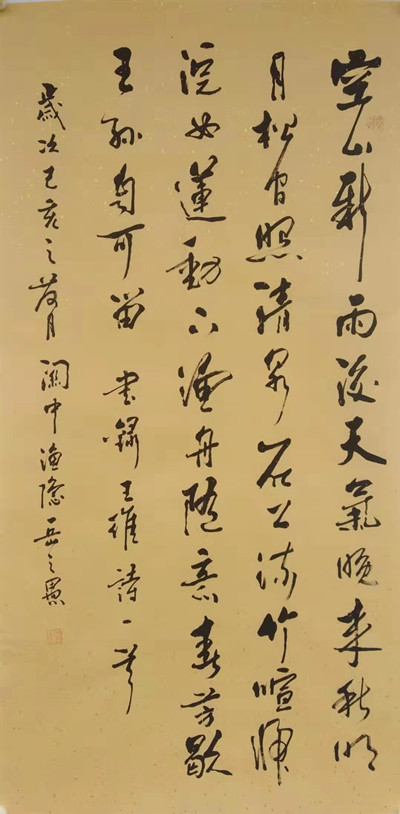 空山新雨後天氣晚來秋明
月松間照清泉石上流竹喧歸
浣女蓮動下漁舟隨意春芳歇
王孫自可留 書錄王維詩一首
歲次己亥之月 關中漁隱岳之愚